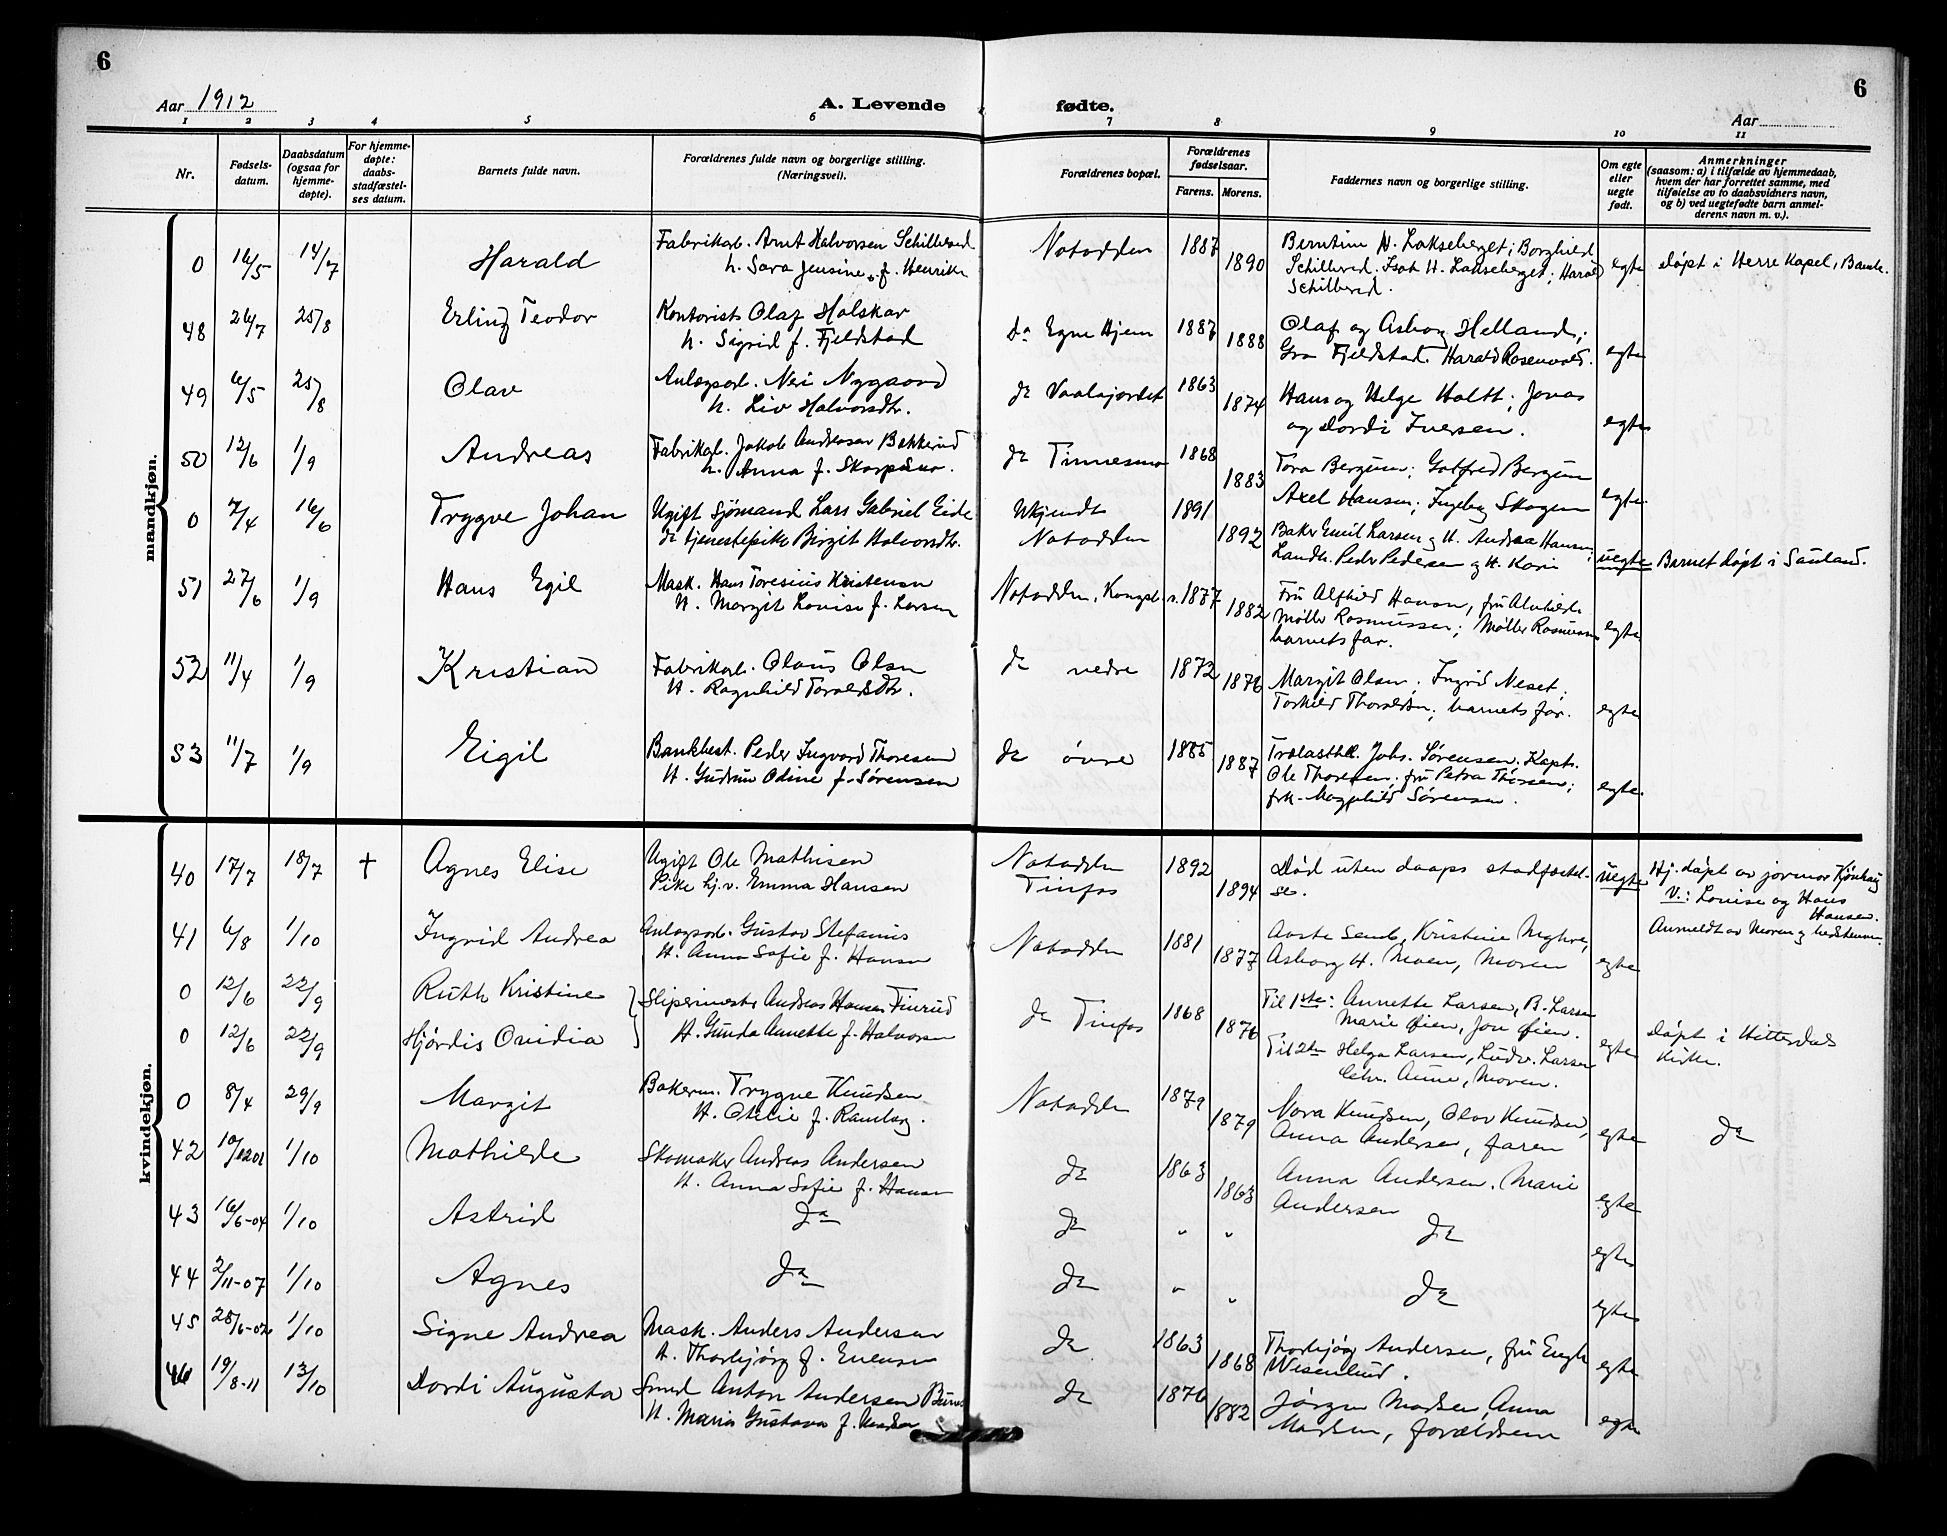 6
6
Aar 1912
A. Levende fødte.
Aar
1 2 3 4 5 6 7 8 9 10 11
Nr.
Fødsels-
datum.
Daabsdatum
(ogsaa for
hjemme-
døpte).
For hjemme-
døpte:
daabs-
stadfæstel-
ses datum.
Barnets fulde navn.
Forældrenes fulde navn og borgerlige stilling.
(Næringsvei).
Forældrenes bopæl.
Forældrenes
fødselsaar.
Farens. Morens.
Faddernes navn og borgerlige stilling.
Om egte
eller
uegte
født.
Anmerkninger
(saasom: a) i tilfælde av hjemmedaab,
hvem der har forrettet samme, med
tilføielse av to daabsvidners navn,
og b) ved uegtefødte barn anmel-
derens navn m. v.).
mandkjøn.
0 16/5 14/7 Harald
Fabrikarb. Arnt Halvorsen Schillerød
h. Sara Jensine f. Henrikn
Notodden 1887 1890
Berntine H. Lakseberget; Borghild
Schillerød. Isak H. Lakseberget; Harald
Schillerød.
egte døpt i Herre Kapel, Bamle.
48 26/7 25/8 Erling Teodor
Kontorist Olaf Holskar
h. Sigrid f. Fjeldstad
do Egne Hjem 1887 1888
Olaf og Aslaug Helland;
Gro Fjeldstad. Harald Rosenvold.
egte
49 6/5 25/8 Olav
Anlægsarb. Nei Nygaard
h. Liv Halvorsdtr.
do 1863 1874
Hans og Helge Holtt; Jonas
og Dordi Iversen.
egte
50 12/6 1/9 Andreas
Fabrikarb. Jakob Andreasen Bakkerud
h. Anna f. Skarpsno.
do Tinnesmo 1868 1883
Tora Bergum; Gotfred Bergum
Axel Hansen; Ingebg Skogen
egte
0 7/4 16/6 Trygve Johan
Ugift Sjømand Lars Gabriel Eide
do tjenestepike Bergit Halvorsdtr.
Ukjendt
Notodden 1891 1892
Baker Emil Larsen og H. Andrea Hansen;
Landh. Peder Pedersen og H. Karin
uegte Barnet døpt i Sauland.
51 27/6 1/9 Hans Egil
Mask. Hans Toresius Kristensen
H. Margit Lovise f. Larsen
Notodden, Kongsb. 1877 1882
Fru Alfhild Hanson, fru Alvhilde
Møller Rosmussen; Møller Rasmussen
barnets far.
egte
52 11/4 1/9 Kristian
Fabrikarb. Olaus Olsen
H. Ragnhild Toraldsdtr.
do nedre 1872 1876
Margit Olsen; Ingrid Neset;
Torkild Thoraldsen; barnets far.
egte
53 11/7 1/9 Eigil
Bankbest. Peder Ingvard Thoresen
H. Gudrun Odine f. Sørensen
do øvre 1885 1887
Trælasthdl. Johs. Sørensen. Kapt.
Ole Thoresen; fru Petra Thorsen;
frk. Magnhild Sørensen.
egte.
kvindekjøn.
40 17/7 18/7 † Agnes Elise
Ugift Ole Mathisen
Pike hj.v. Emma Hansen
Notodden
Tinfos 1892 1894
Død uten daaps stadfæstel-
se.
uegte
Hj. døpt av jormor
V.: Lovise og Hans
Hansen.
Anmeldt av Moren og
41 6/8 1/10 Ingrid Andrea
Anlægsarb. Gustav Stefanius
H. Anna Sofie f. Hansen
Notodden 1881 1877
Aaste Sem, Kristine Myhre,
Aslaug H. Moen, Moren
egte
0 12/6 22/9 Ruth Kristine
0 12/6 22/9 Hjørdis Ovidia
Slipermester Andreas Hansen Finrud
H. Gunda Annette f. Halvorsen
do Tinfos 1868 1876
Til 1ste: Annette Larsen, B. Larsen
Marie Øien, Jon Øien.
Til 2den Helga Larsen, Ludv. Larsen
Anne, Moren.
egte
Døpt i Hitterdals
Kirke.
0 8/4 29/9 Margit
Bakerm. Trygve Knudsen
H. Otilie f. Ramberg.
Notodden 1879 1879
Nora Knudsen, Olav Knudsen,
Anna Andersen, faren
egte do
42 10/12 01 1/10 Mathilde
Skomaker Andreas Andersen
H. Anna Sofie f. Hansen
do 1863 1863
Anna Andersen. Marie
Andersen
egte
43 16/6-04 1/10 Astrid
do do " " do egte
44 2/11-07 1/10 Agnes
do do " " do egte
45 25/6-02 1/10 Signe Andrea
Mask. Anders Andersen
H. Thorbjørg f. Evensen
do 1863 1868
Thorbjørg Andersen, fru Engh
Wisenlund.
egte
46 19/8-11 13/10 Dordi Augusta
Smed Anton Andersen
H. Maria Gustava f.
do 1876 1882
Jørgen Madsen, Anna
Madsen, forældrene
egte